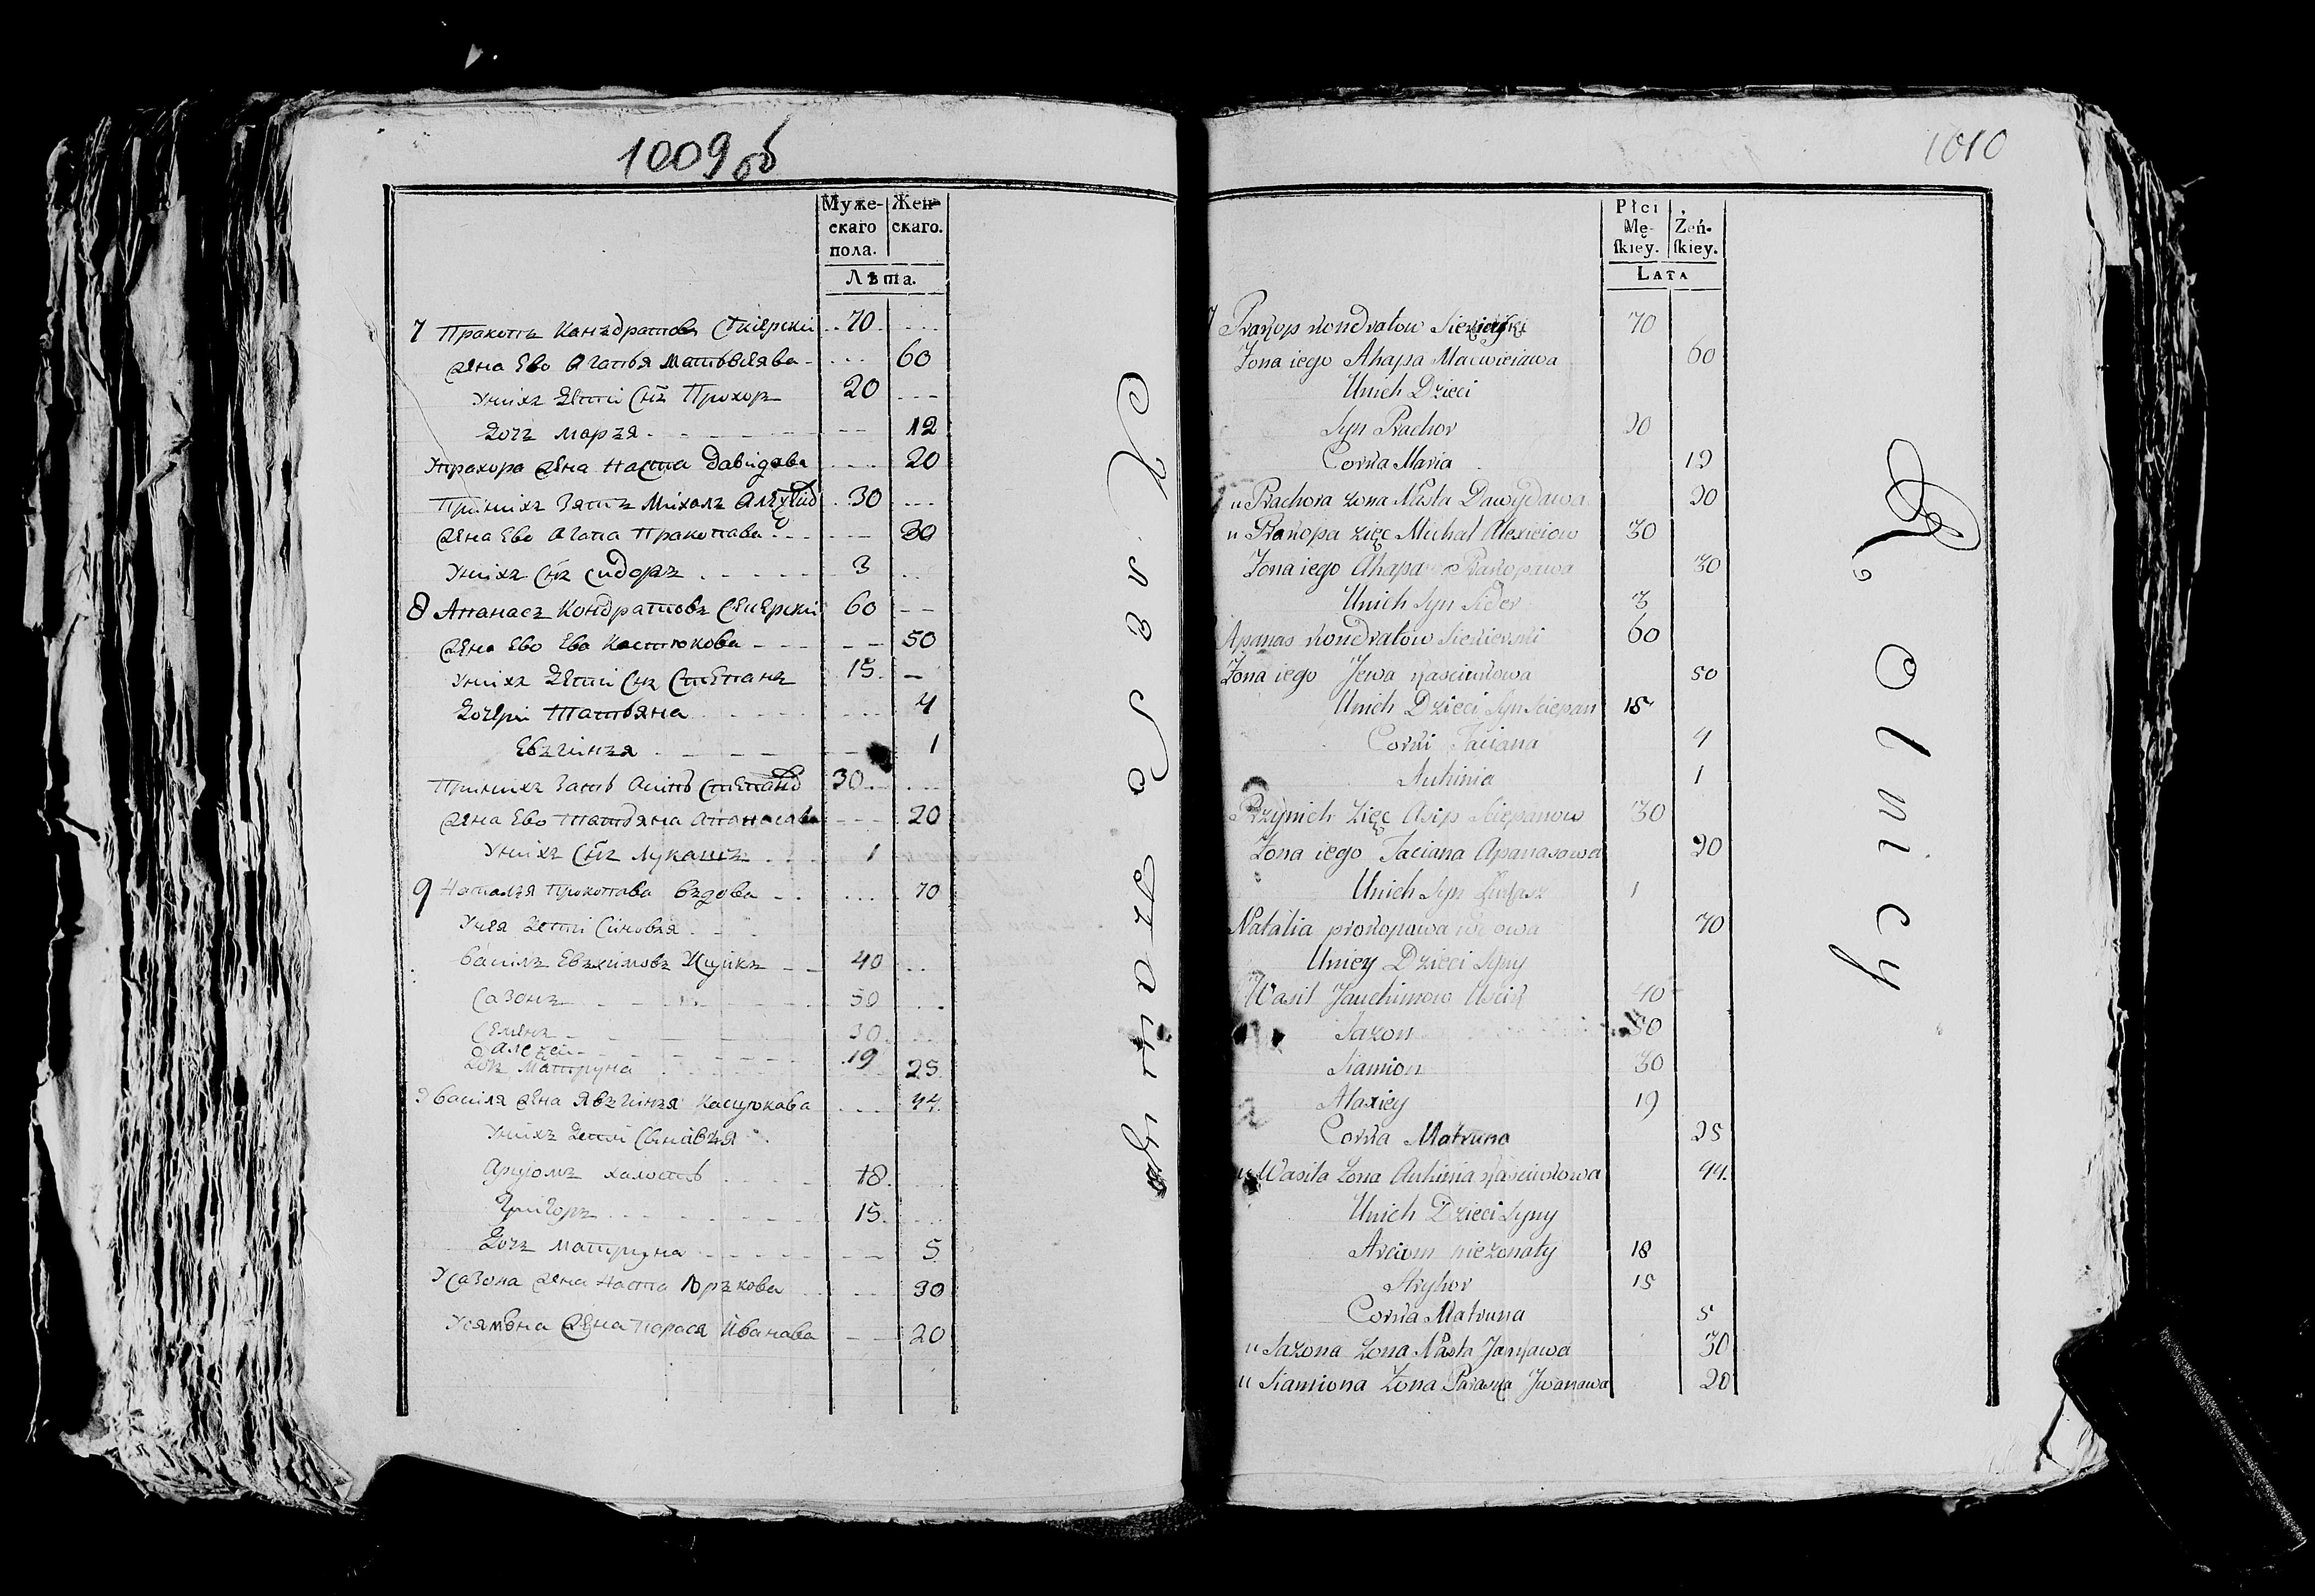 1009об
Муже-
скаго
пола.
Жен-
скаго.
Лѣта.
7 Пракопъ Канъдратовъ 70
Жена Ево Агапья Матьвеява 60
Унихъ Дети Снъ Прохоръ 20
Дочъ маръя 12
Упрахора жена Наста Давидава 20
Принихъ Зять Михалъ 30
Жена Ево Агапа Пракопава 30
Унихъ Снъ Сидоръ 3
8 Апанасъ Кондратовъ Секерскии 60
Жена Ево Ева Кастюкова 50
Унихъ Дети Снъ Степанъ 15
Дочери Татьяна 4
Евъгинъя 1
Принихъ Зать Асипъ 30
Жена Ево Татьяна Апанасава 20
Унихъ Снъ Лукашъ 1
9 Наталъя Прокопава въдова 70
Унея Дети Синовъя
Василъ Евхимовъ 40
Сазонъ 50
Семенъ 30
Алексеи 19
Дочъ Матруна 25
Увасиля Жена Явъгинъя Касцюкава 44.
Унихъ Дети Сынавъя
Арцюмъ халостъ 18
Григоръ 15
Дочъ матруна 5
Усазона Жена Наста Юръкова 30
Усямёна Жена Парася Иванава 20
1010
Płci
Mę-
skiey.
Żeń-
skiey.
Lata
7 Prakop Kondratow 70
Zona iego Ahapa Maćwieiawa 60
Unich Dzieci
Syn Prachor 20
Corka Maria 12
u Prachora zona Nasta Dawydawa 20
u Prakopa zięc Michał Alexieiow 30
Zona iego Ahapa Prakopawa 30
Unich Syn Sider 3
Apanas Kondratow Siekierski 60
Zona iego Jewa Kasciukowa 50
Unich Dzieci Syn Sciepan 15
Corki Taciana 4
Auhinia 1
Przynich zięc Asip Sciepanow 30
Zona iego Taciana Apanasowa 20
Unich Syn Łukasz 1
Natalia prokopawa wdowa 70
Uniey Dzieci Syny
Wasil Jauchimow 40
Sazon 50
Siamion 30
Alaxiey 19
Corka Matruna 25
u Wasila Zona Auhinia Kasciukowa 44.
Unich Dzieci Syny
Arcium niezonaty 18
Hryhor 15
Corka Matruna 5
u Sazona Zona Nasta Jurkawa 30
u Siamiona Zona Paraska Jwanawa 20
Rolnicy